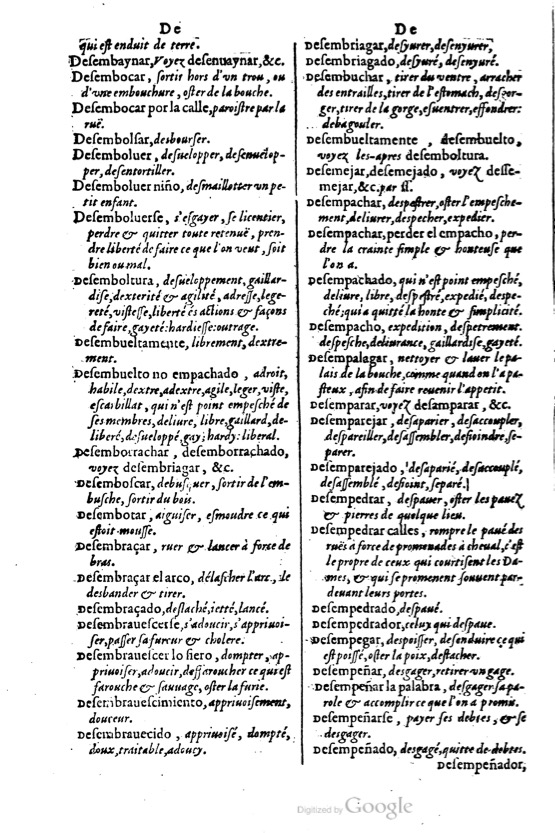 De
qui est enduit de terre.
Desembaynar, Voyez desenuaynar, &c.
Desembocar, sortir hors d'vn trou, ou
d'vne embouchure, oster de la bouche.
Desembocar por la calle, paroistre par la
ruë.
Desembolsar, desbourser.
Desemboluer, desuelopper, desenuelop-
per, desentortiller.
Desemboluer niño, desmaillotter vn pe-
tit enfant.
Desemboluerse, s'esgayer, se licentier,
perdre & quitter toute retenuë, pren-
dre liberté de faire ce que l'on veut, soit
bien ou mal.
Desemboltura, desueloppement, gaillar-
dise, dexterité & agilité, adresse, lege-
reté, vistesse, liberté és actions & façons
de faire, gayeté: hardiesse: outrage.
Desembueltamente, librement, dextre-
ment.
Desembuelto no empachado, adroit,
habile, dextre, adextre, agile, leger, viste,
escarbillat, qui n'est point empesché de
ses membres, deliure, libre, gaillard, de-
liberé, desueloppé, gay; hardy: liberal.
Desemborrachar, desemborrachado,
voyez desembriagar, &c.
Desemboscar, debusquer, sortir de l'em-
busche, sortir du bois.
Desembotar, aiguiser, esmoudre ce qui
estoit mousse.
Desembraçar, ruer & lancer à force de
bras.
Desembraçar el arco, délascher l'arc, le
desbander & tirer.
Desembraçado, deslaché, ietté, lancé.
Desembrauescerse, s'adoucir, s'appriuoi-
ser, passer sa fureur & cholere.
Desembrauescer lo fiero, dompter, ap-
priuoiser, adoucir, deffaroucher ce qui est
farouche & sauuage, oster la furie.
Desembrauescimiento, appriuoisement,
douceur.
Desembrauecido, appriuoisé, dompté,
doux, traitable, adoucy.
De
Desembriagar, desyurer, desenyurer,
Desembriagado, desyuré, desenyuré.
Desembuchar, tirer du ventre, arracher
des entrailles, tirer de l'estomach, desgor-
ger, tirer de la gorge, esuentrer, effondrer:
debagouler.
Desembueltamente, desembuelto,
voyez les-apres desemboltura.
Desemejar, desemejado, voyez desse-
mejar, &c. par ss.
Desempachar, despestrer, oster l'empesche-
ment, deliurer, despecher, expedier.
Desempachar, perder el empacho, per-
dre la crainte simple & honteuse que
l'on a.
Desempachado, qui n'est point empesché,
deliure, libre, despestré, expedié, despe-
ché; qui a quitté la honte & simplicité.
Desempacho, expedition, despetrement.
despesche, deliurance, gaillardise, gayeté.
Desempalagar, nettoyer & lauer le pa-
lais de la bouche, comme quand on l'a pa-
steux, afin de faire reuenir l'appetit.
Desemparar, voyez desamparar, &c.
Desemparejar, desaparier, desaccoupler,
despareiller, desassembler, desioindre, se-
parer.
Desemparejado, desaparié, desaccouplé,
desassemblé, desioint, separé.
Desempedrar, despauer, oster les pauez
& pierres de quelque lieu.
Desempedrar calles, rompre le paué des
ruës à force de promenades à cheual, c'est
le propre de ceux qui courtisent les Da-
mes, & qui se promenent souuent par
deuant leurs portes.
Desempedrado, despaué.
Desempedrador, celuy qui despaue.
Desempegar, despoisser, desenduire ce qui
est poissé, oster la poix, destacher.
Desempeñar, desgager, retirer vn gage.
Desempeñar la palabra, desgager sa pa-
role & accomplir ce que l'on a promis.
Desempeñarse, payer ses debtes, & se
desgager.
Desempeñado, desgagé, quitte de debtes.
Desempeñador,
Digitized by Google